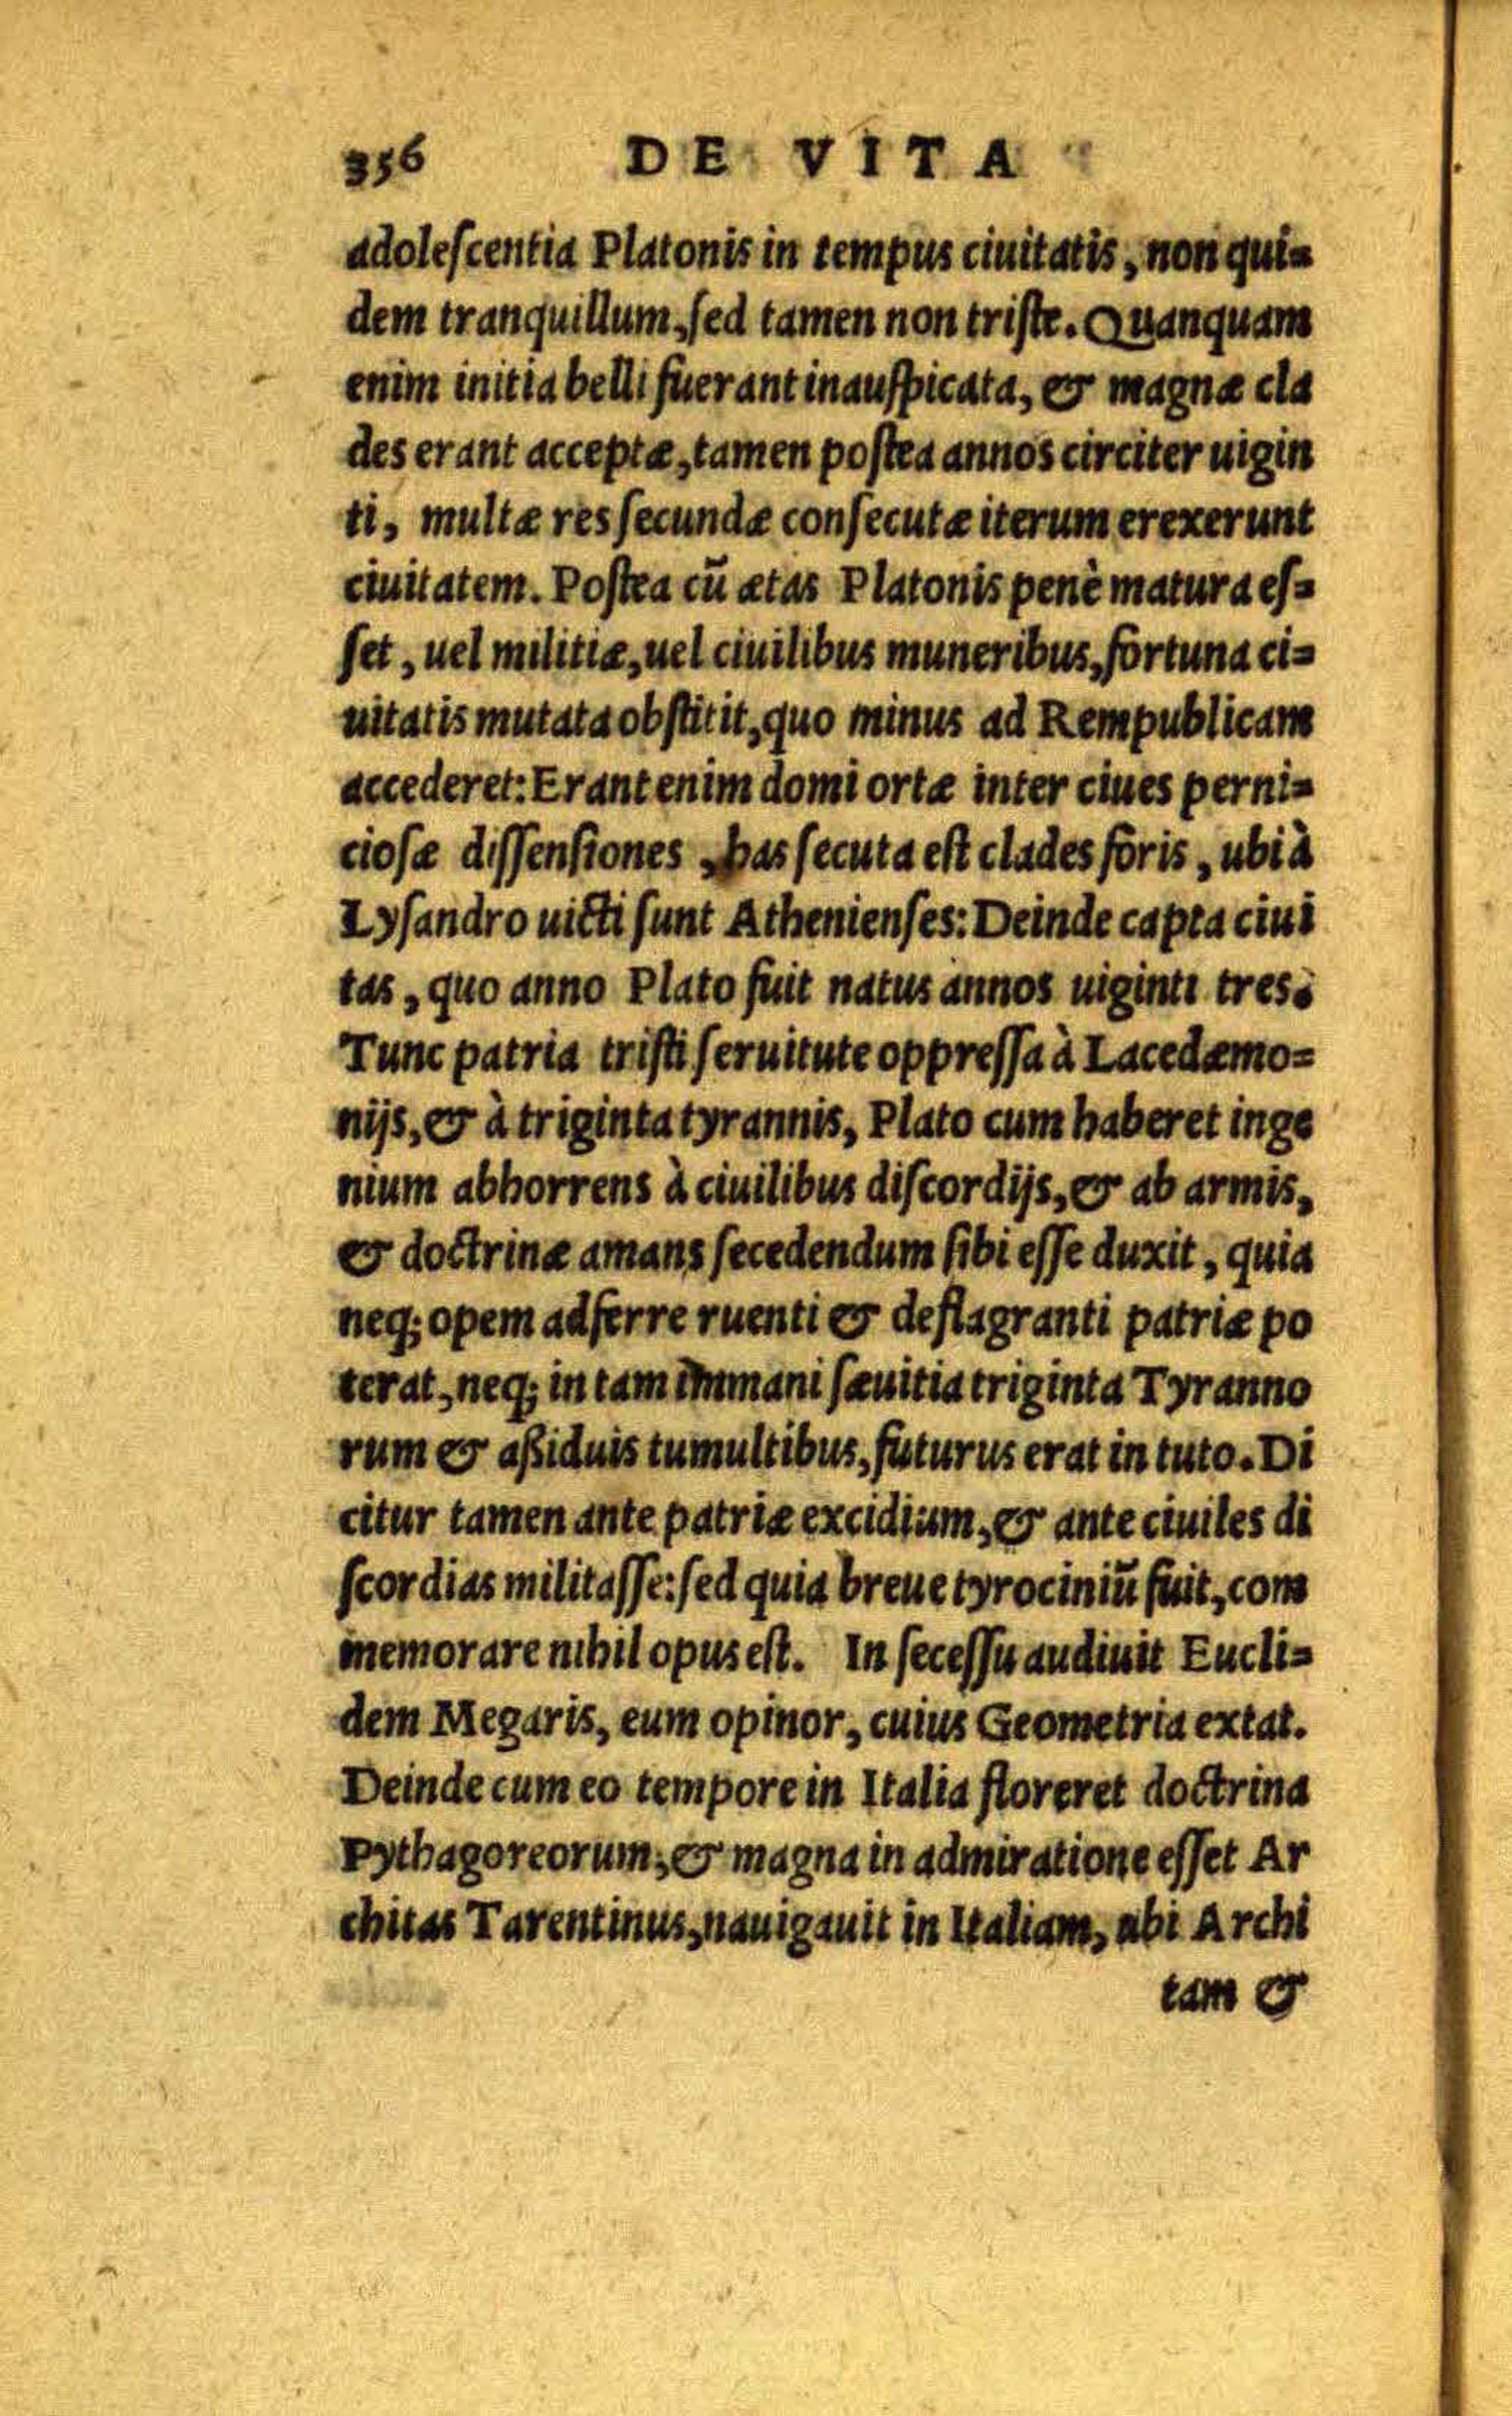 356 DE VITA
adoleſcentia Platonis in tempus ciuitatis, non qui=
dem tranquillum, ſed tamen non triſte. Quanquam
enim initia belli fuerant inauſpicata, & magnæ cla
des erant acceptæ, tamen poſtea annos circiter uigin
ti, multæ res ſecundæ conſecutæ iterum erexerunt
ciuitatem. Poſtea cũ ætas Platonis penè matura eſ=
ſet, uel militiæ, uel ciuilibus muneribus, fortuna ci=
uitatis mutata obſtitit, quo minus ad Rempublicam
accederet: Erant enim domi ortæ inter ciues perni=
cioſæ diſſenſiones, has ſecuta eſt clades foris, ubi à
Lyſandro uicti ſunt Athenienſes: Deinde capta ciui
tas, quo anno Plato fuit natus annos uiginti tres.
Tunc patria triſti ſeruitute oppreſſa à Lacedæmo=
nijs, & à triginta tyrannis, Plato cum haberet inge
nium abhorrens à ciuilibus diſcordijs, & ab armis,
& doctrinæ amans ſecedendum ſibi eſſe duxit, quia
neq; opem adferre ruenti & deflagranti patriæ po
terat, neq; in tam immani ſæuitia triginta Tyranno
rum & aßiduis tumultibus, futurus erat in tuto. Di
citur tamen ante patriæ excidium, & ante ciuiles di
ſcordias militaſſe: ſed quia breue tyrociniũ fuit, com
memorare nihil opus eſt. In ſeceſſu audiuit Eucli=
dem Megaris, eum opinor, cuius Geometria extat.
Deinde cum eo tempore in Italia floreret doctrina
Pythagoreorum, & magna in admiratione eſſet Ar
chitas Tarentinus, nauigauit in Italiam, ubi Archi
tam &